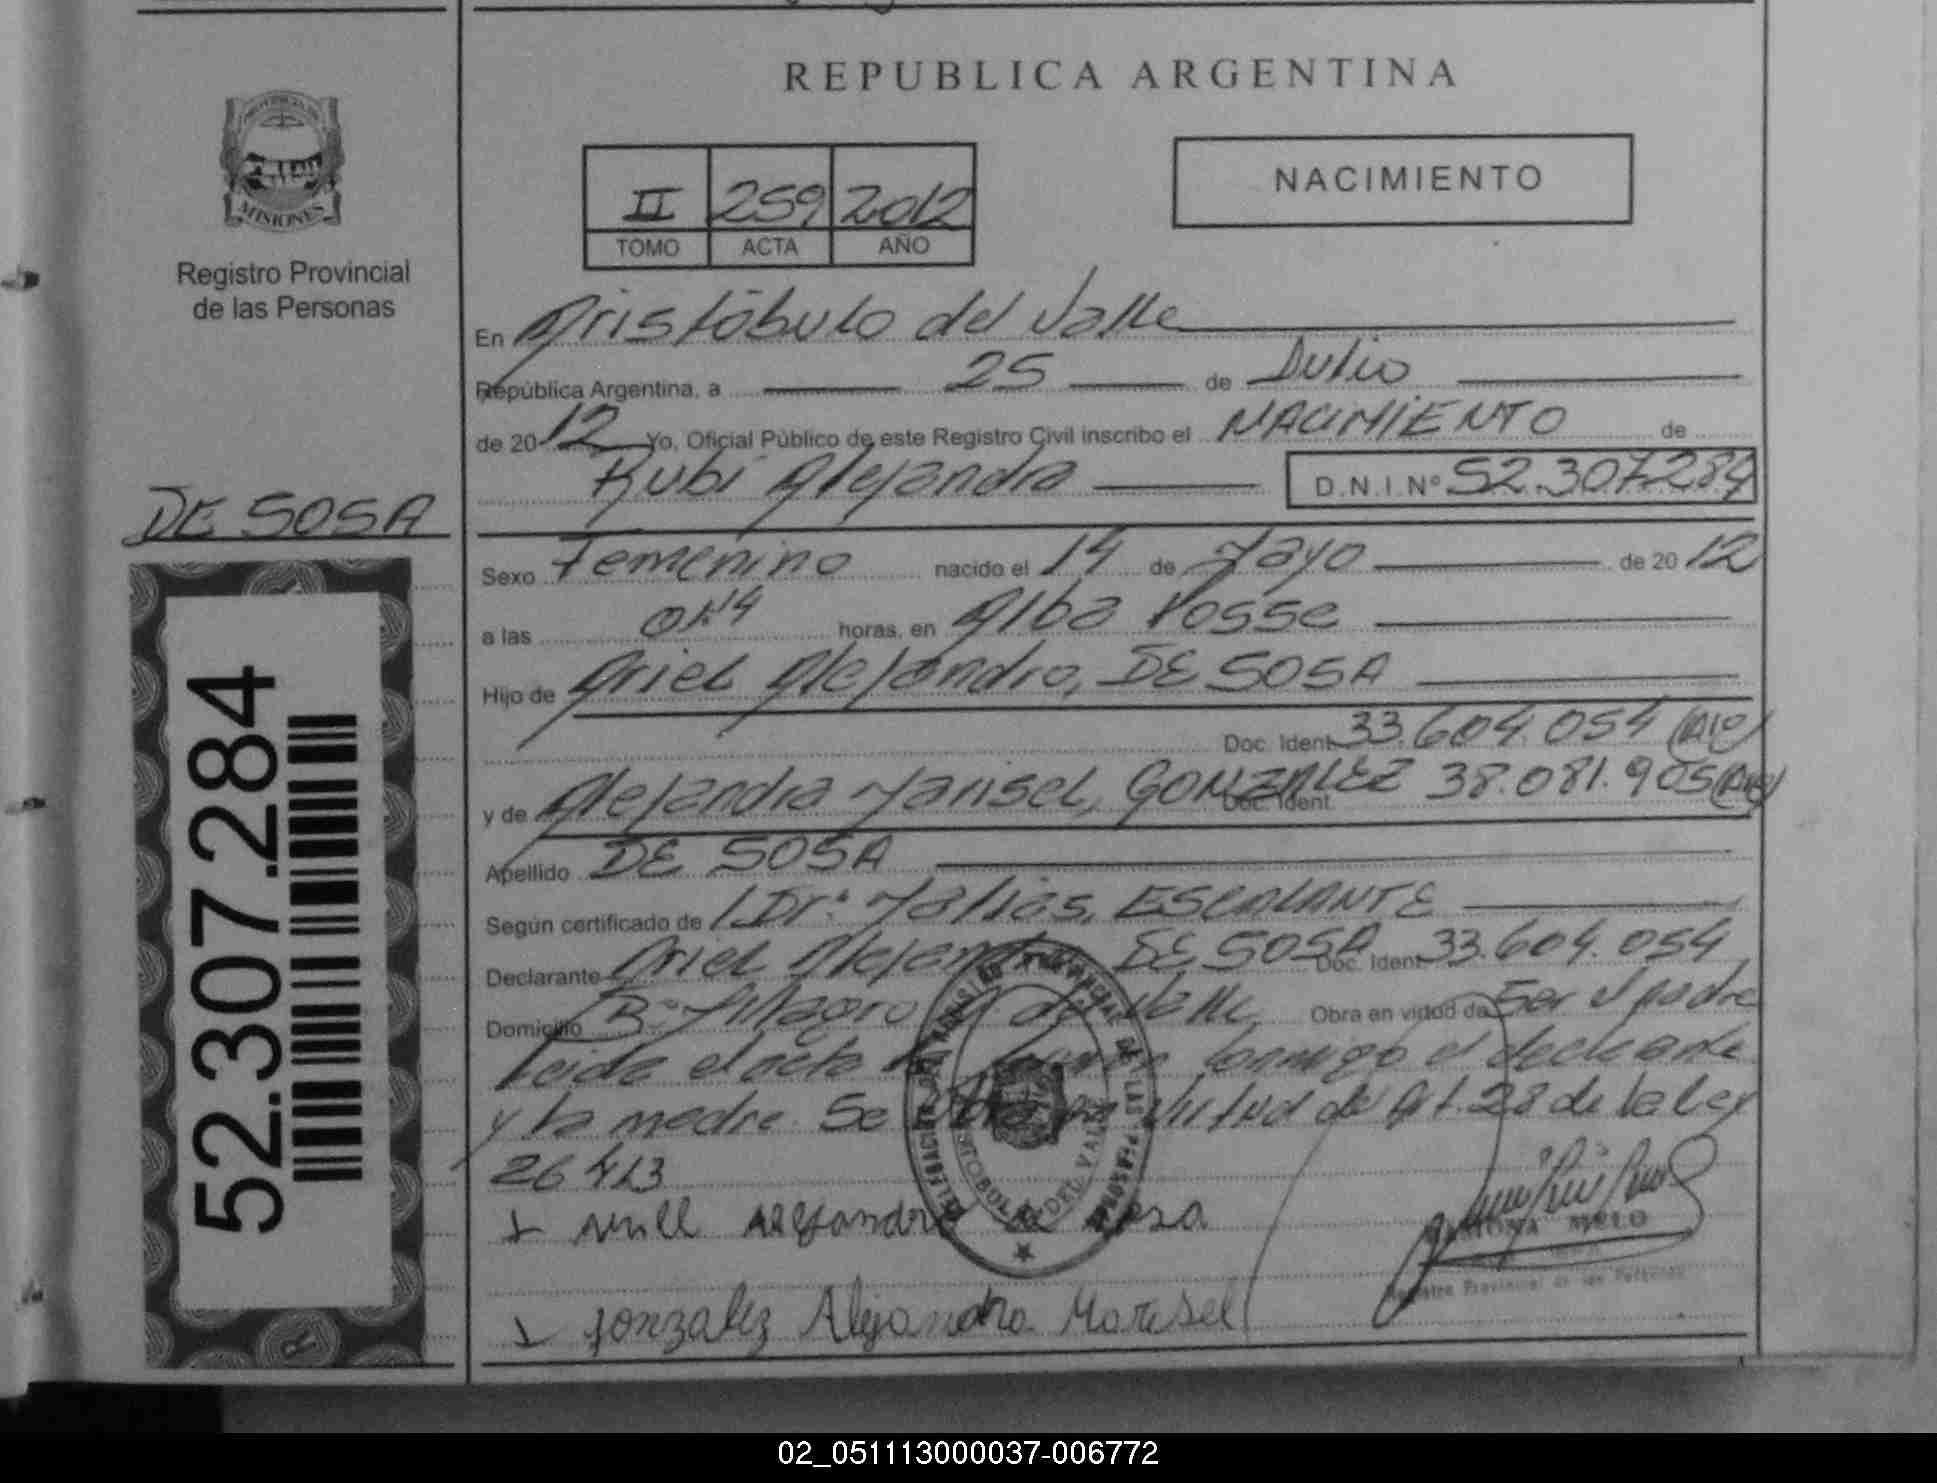 REPUBLICA ARGENTINA
PROVINCIA DE
MISIONES
Registro Provincial
de las Personas
II 259 2012
TOMO ACTA AÑO
NACIMIENTO
En Aristóbulo del Valle
República Argentina, a 25 de Julio
de 2012 Yo, Oficial Público de este Registro Civil inscribo el NACIMIENTO de
Rubi Alejandra D.N.I.Nº 52.307.284
DE SOSA
Sexo Femenino nacido el 14 de Mayo de 2012
a las horas, en Alba Posse
Hijo de Ariel Alejandro, DE SOSA
Doc. Ident. 33.604.054
y de Alejandra Marisel, GONZALEZ Doc. Ident. 38.081.905
Apellido DE SOSA
Según certificado de Matias, ESCALANTE
Declarante Ariel DE SOSA Doc. Ident. 33.604.054
Domicilio Bº Milagro Valle Obra en virtud de Ser el padre
Leida el acta conmigo el declarante
y la madre. Se virtud del Art. 28 de la Ley
26413
Alejandro de Sosa
gonzalez Alejandra Marisel
REGISTRO PROVINCIAL DE LAS PERSONAS
DELEGACION
ARISTOBULO DEL VALLE
RAMONA MELO
Registro Provincial de las Personas
52.307.284
02_051113000037-006772